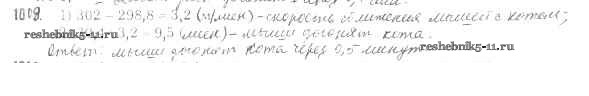 1009. 1) 302 - 298,8 = 3,2 (м/мин) - скорость сближения мышей с котом;
reshebnik5-11.ru 3,2 = 9,5 (мин) - мыши догонят кота.
Ответ: мыши догонят кота через 9,5 минут reshebnik5-11.ru